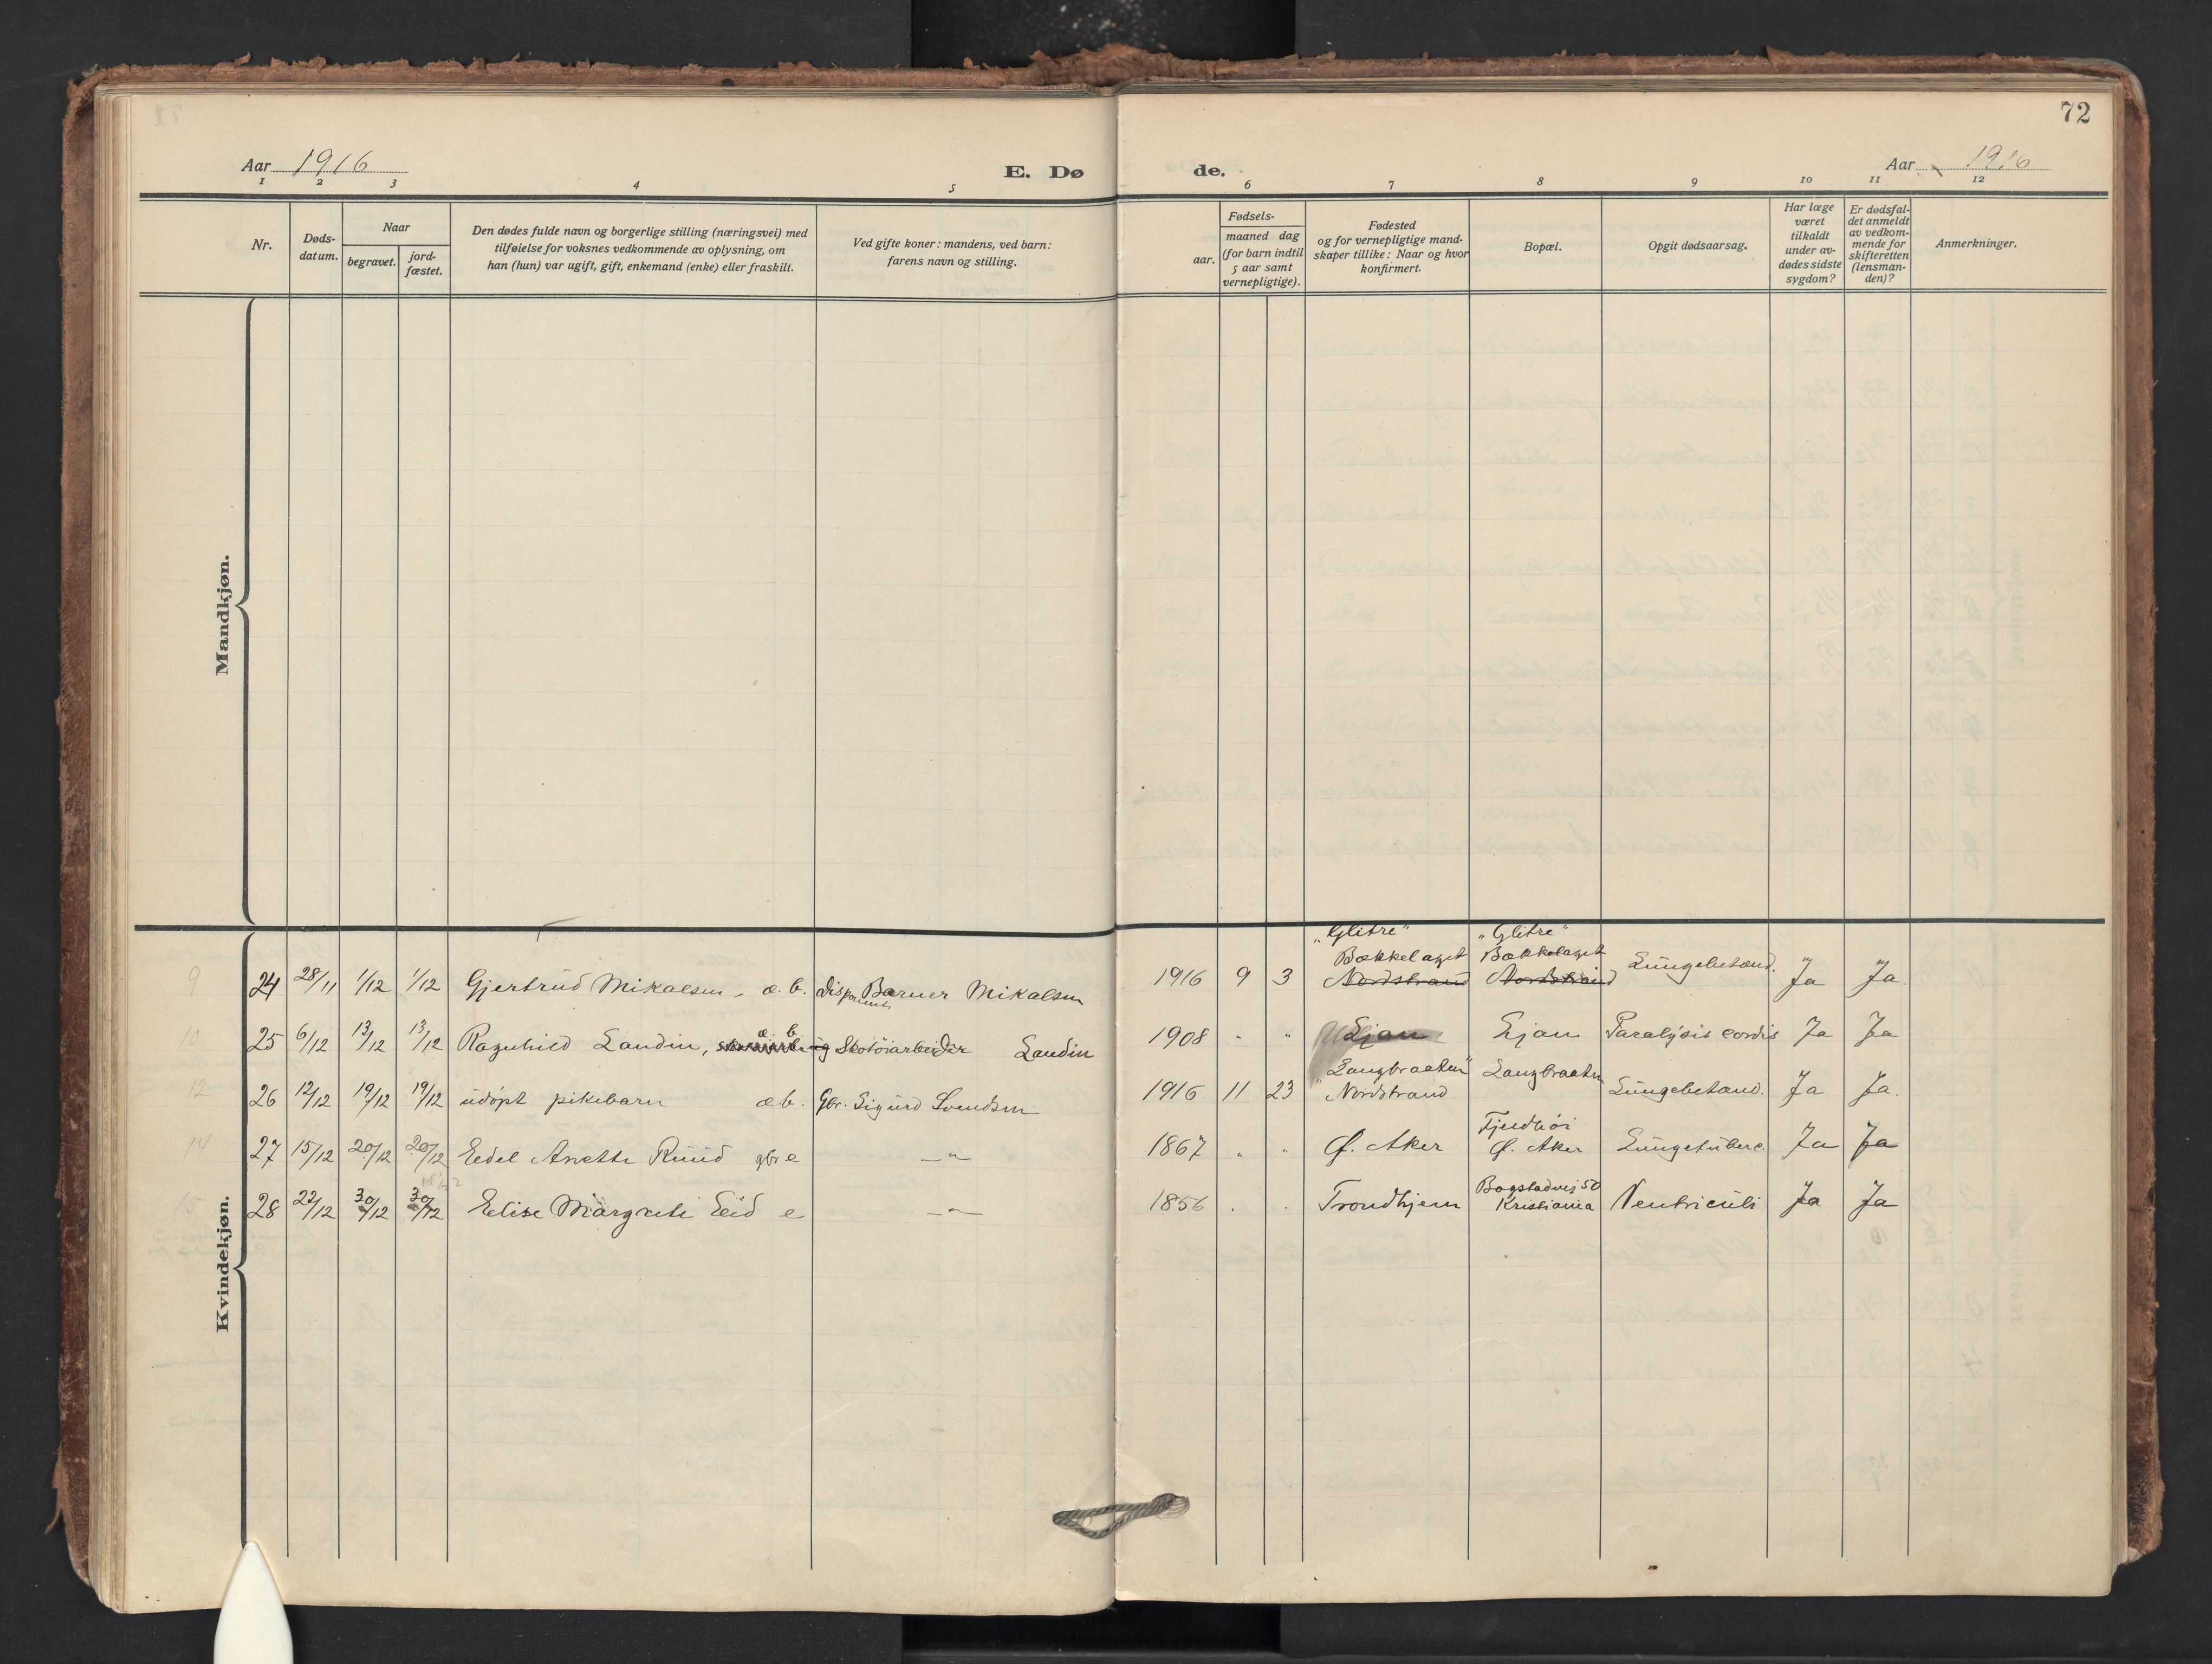 72
Aar 1916
E. Dø
de.
Aar 1916
1 2 3 4 5 6 7 8 9 10 11 12
Nr.
Døds-
datum.
Naar
begravet.
jord-
fæstet.
Den dødes fulde navn og borgerlige stilling (næringsvei) med
tilføielse for voksnes vedkommende av oplysning, om
han (hun) var ugift, gift, enkemand (enke) eller fraskilt.
Ved gifte koner: mandens, ved barn:
farens navn og stilling.
Fødsels-
aar.
maaned dag
(for barn indtil
5 aar samt
vernepligtige).
Fødested
og for vernepligtige mand-
skaper tillike: Naar og hvor
konfirmert.
Bopæl.
Opgit dødsaarsag.
Har læge
været
tilkaldt
under av-
dødes sidste
sygdom?
Er dødsfal-
det anmeldt
av vedkom-
mende for
skifteretten
(lensman-
den)?
Anmerkninger.
Mandkjøn.
Kvindekjøn.
"Glitre" "Glitre"
Bækkelaget Bækkelaget
24 28/11 1/12 1/12 Gjertrud Mikalsen, æ.b. Disponent Barner Mikalsen 1916 9 3 Nordstrand Nordstrand Lungebetænd. Ja Ja
æ b
25 6/12 13/12 13/12 Ragnhild Landin, Skotöiarbeider Landin 1908 " " Ljan Ljan Paralysis cordis Ja Ja
"Langbraaten" Langbraaten
26 12/12 19/12 19/12 udöpt pikebarn æb. Gbr. Sigurd Svendsen 1916 11 23 Nordstrand Lungebetænd. Ja Ja.
Fjeldhöi
27 15/12 20/12 20/12 Edel Anette Ruud gbr e —"— 1867 " " Ø. Aker Ø. Aker Lungetuberc. Ja Ja
Bogstadvej 50
28 22/12 30/12 30/12 Elise Margrete Eid e —"— 1856 " " Trondhjem Kristiania Ventriculi Ja Ja
9
10
12
14
15